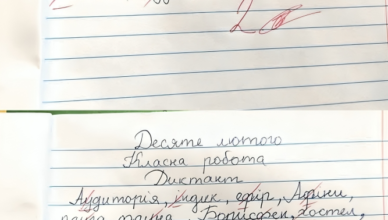 2
Десяте лютого
Класна робота
Диктант
Аудиторія, індик, ефір, Афіни,
Борисфен, хостел,